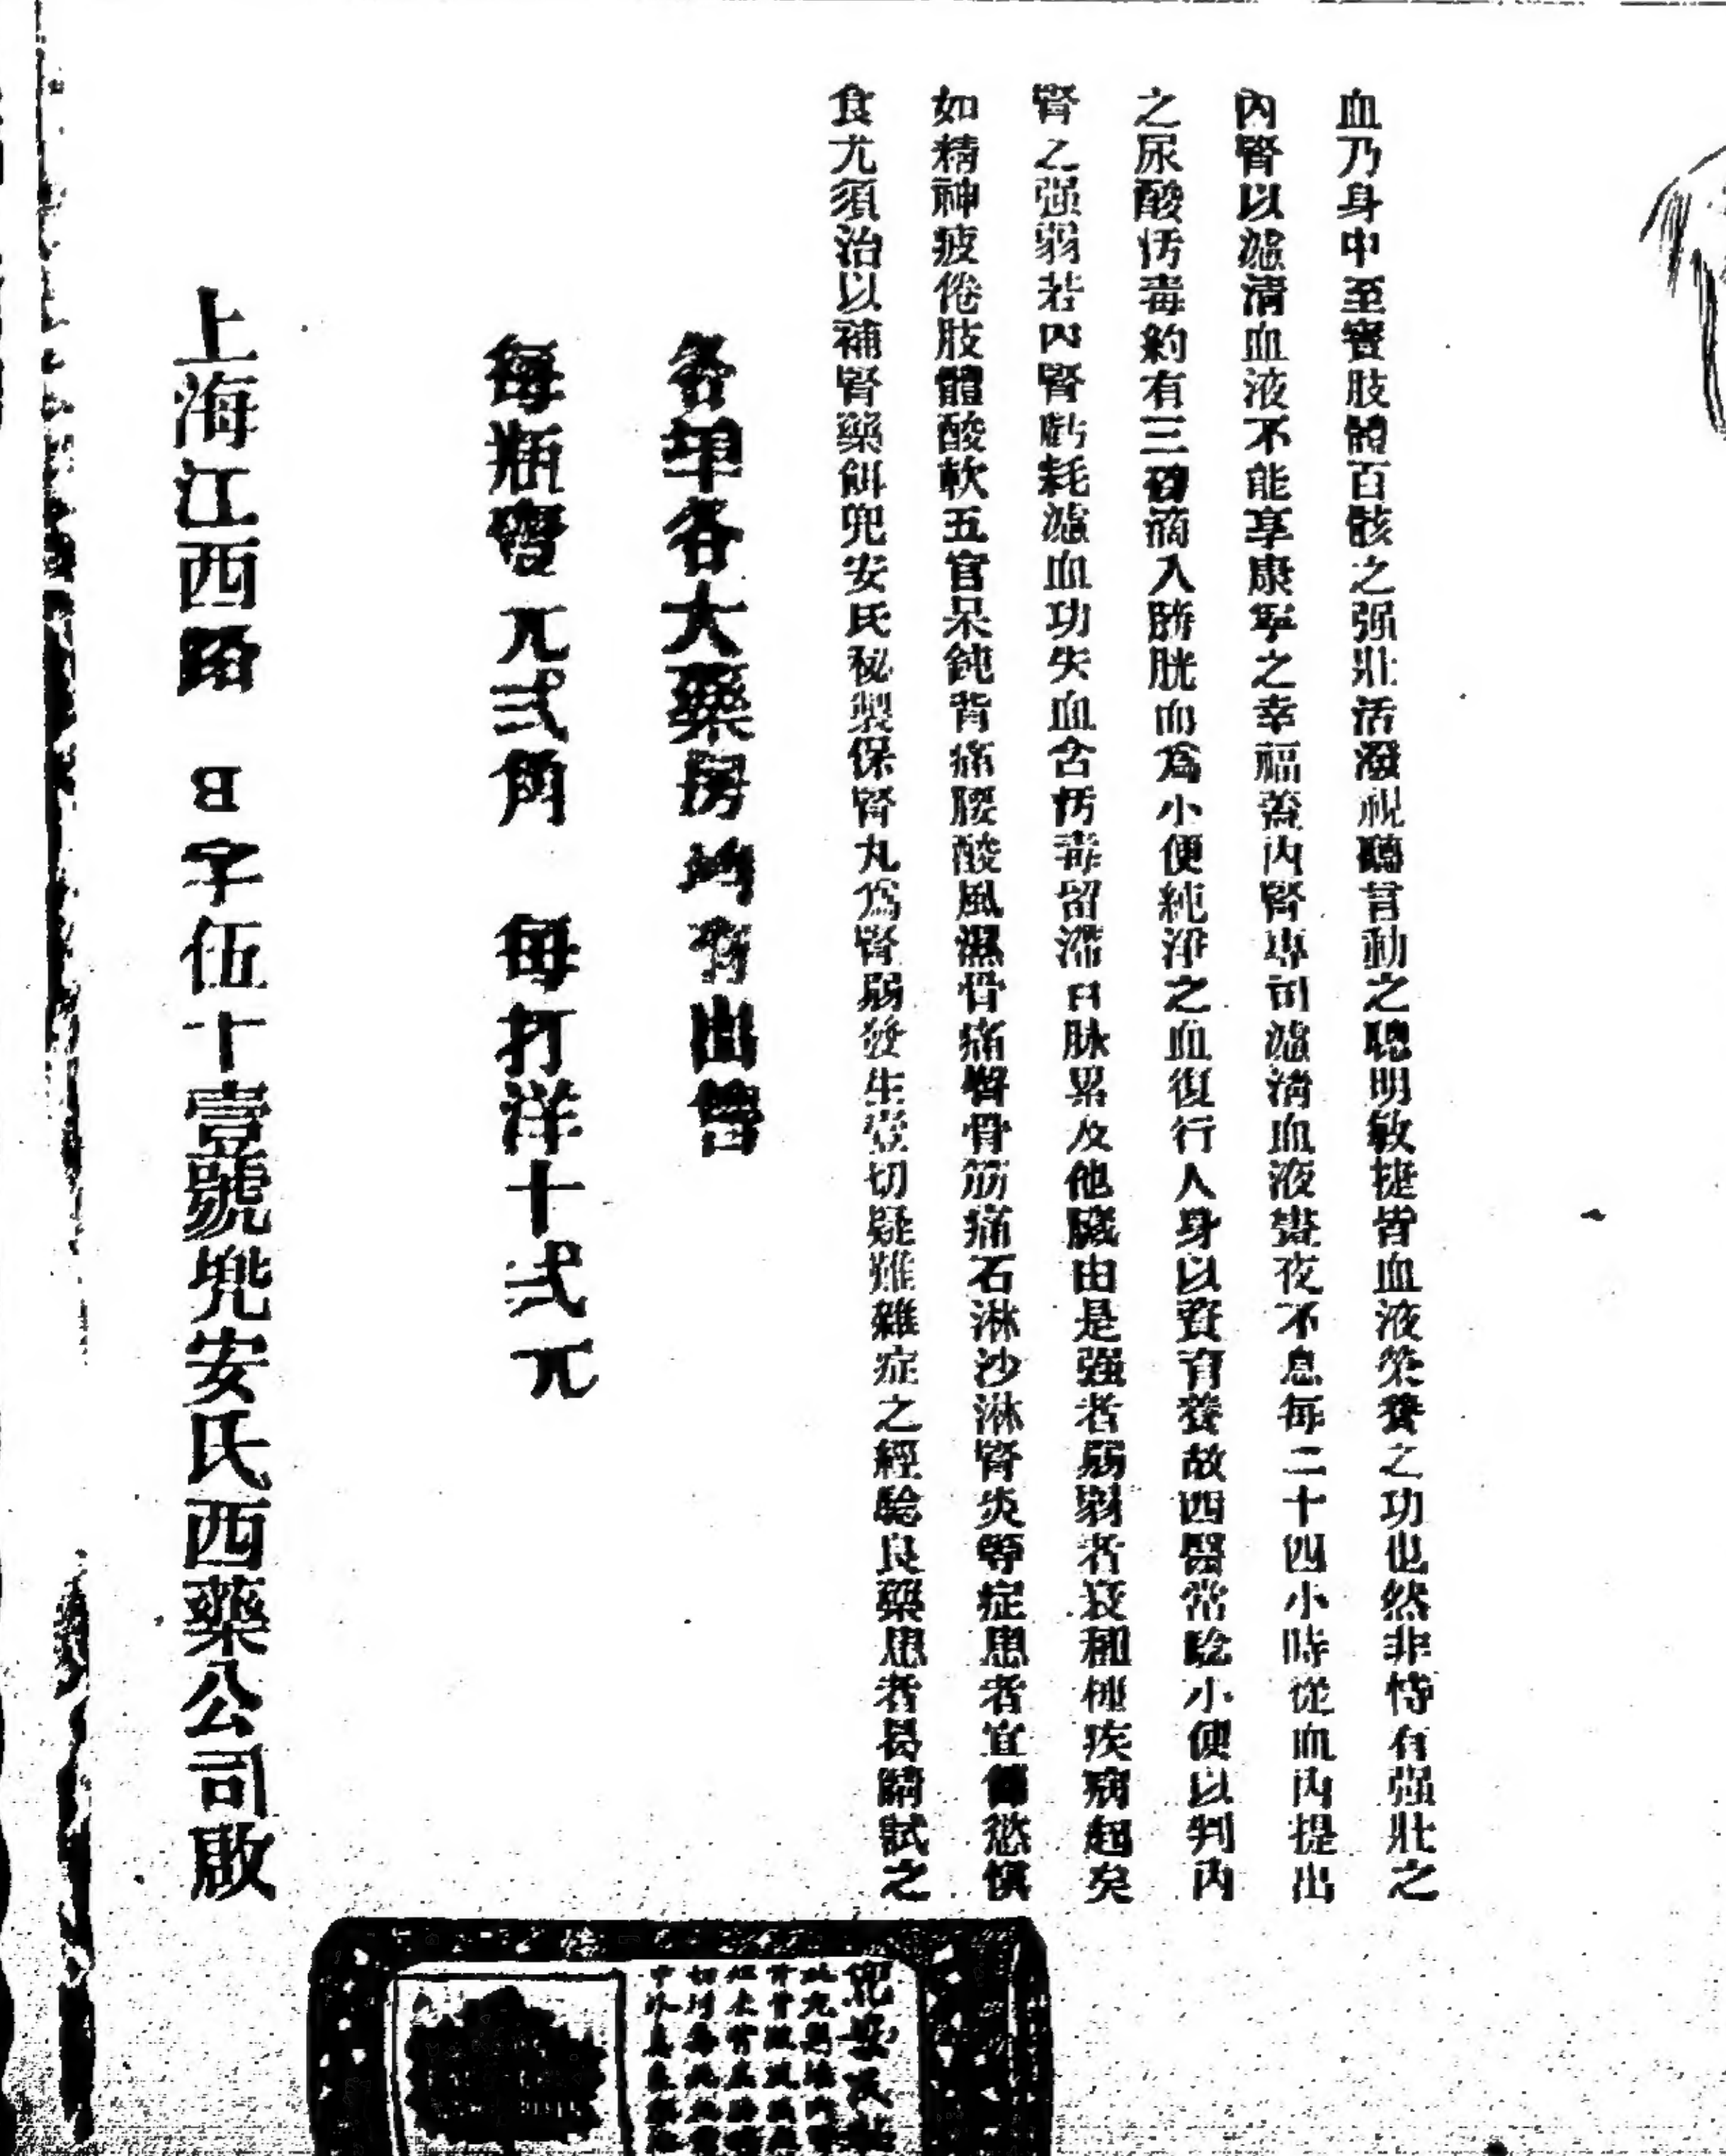 血乃身中至寶肢體百骸之强壯活潑視聽言動之聰明敏捷皆血液榮養之功也然非恃有强壯之
內腎以濾清血液不能享康寧之幸福蓋內腎專司濾清血液晝夜不息每二十四小時從血內提出
之尿酸汚毒約有三滴入膀胱而爲小便純淨之血復行人身以資育養故西醫常騐小便以判內
腎之强弱若內腎虧耗濾血功失血含汚毒留滯日脉累及他臟由是强者弱弱者衰種種疾病起矣
如精神疲倦肢體酸軟五官呆鈍背痛腰酸風濕骨痛臀骨筋痛石淋沙淋腎炎等症患者宜節慾慎
食尤須治以補腎藥餌兜安氏秘製保腎丸爲腎弱發生壹切疑難雜症之經騐良藥患者曷購試之
各埠各大藥房均有出售
每瓶壹元弍角 每打洋十弍元
上海江西路 B字伍十壹號兜安氏西藥公司啟
兜安氏秘